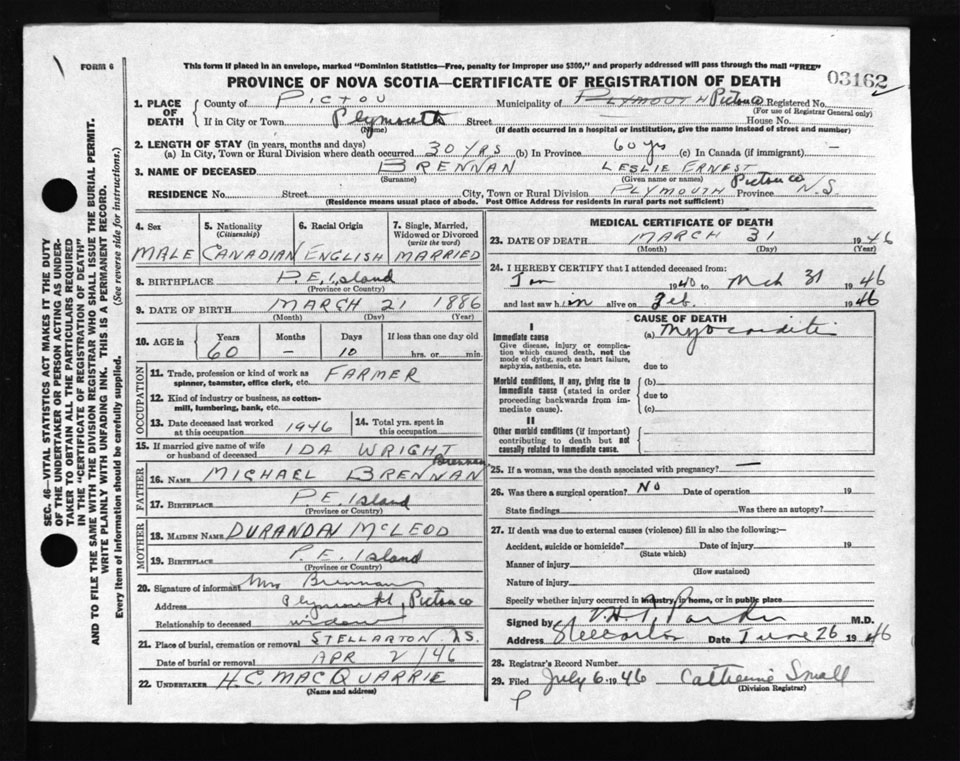 FORM 6
This form if placed in an envelope, marked "Dominion Statistics—Free, penalty for improper use $300," and properly addressed will pass through the mail "FREE"
PROVINCE OF NOVA SCOTIA—CERTIFICATE OF REGISTRATION OF DEATH
03162
1. PLACE OF DEATH
County of PICTOU Municipality of PLYMOUTH Pictou co Registered No.
(For use of Registrar General only)
If in City or Town Plymouth Street House No.
(Name) (If death occurred in a hospital or institution, give the name instead of street and number)
2. LENGTH OF STAY (in years, months and days)
(a) In City, Town or Rural Division where death occurred 30 YRS (b) In Province 60 yrs (c) In Canada (if immigrant) —
3. NAME OF DECEASED BRENNAN LESLIE ERNEST
(Surname) (Given name or names)
RESIDENCE No. Street City, Town or Rural Division PLYMOUTH Pictou co Province N.S.
(Residence means usual place of abode. Post Office Address for residents in rural parts not sufficient)
4. Sex 5. Nationality (Citizenship) 6. Racial Origin 7. Single, Married, Widowed or Divorced (write the word)
MALE CANADIAN ENGLISH MARRIED
8. BIRTHPLACE P.E. Island
(Province or Country)
9. DATE OF BIRTH MARCH 21 1886
(Month) (Day) (Year)
10. AGE is Years Months Days If less than one day old
60 – 10 hrs. or min.
OCCUPATION
11. Trade, profession or kind of work as spinner, teamster, office clerk, etc. FARMER
12. Kind of industry or business, as cotton-mill, lumbering, bank, etc.
13. Date deceased last worked at this occupation 1946 14. Total yrs. spent in this occupation
15. If married give name of wife or husband of deceased IDA WRIGHT Brennan
FATHER
16. NAME MICHAEL BRENNAN
17. BIRTHPLACE P.E. Island
(Province or Country)
MOTHER
18. MAIDEN NAME DURANDA MCLEOD
19. BIRTHPLACE P.E. Island
(Province or Country)
20. Signature of informant Mrs Brennan
Address Plymouth, Pictou co
Relationship to deceased widow
21. Place of burial, cremation or removal STELLARTON N.S.
Date of burial or removal APR 2/46
22. UNDERTAKER H.C. MACQUARRIE
(Name and address)
MEDICAL CERTIFICATE OF DEATH
23. DATE OF DEATH MARCH 31 1946
(Month) (Day) (Year)
24. I HEREBY CERTIFY that I attended deceased from:
Jan 1940 to Mch 31 1946
and last saw him alive on Feb. 1946
CAUSE OF DEATH
I
Immediate cause (a) Myocarditis
Give disease, injury or complication which caused death, not the mode of dying, such as heart failure, asphyxia, asthenia, etc.
due to
Morbid conditions, if any, giving rise to immediate cause (stated in order proceeding backwards from immediate cause).
(b)
due to
(c)
II
Other morbid conditions (if important) contributing to death but not causally related to immediate cause.
25. If a woman, was the death associated with pregnancy? —
26. Was there a surgical operation? No Date of operation 19
State findings Was there an autopsy?
27. If death was due to external causes (violence) fill in also the following:—
Accident, suicide or homicide? Date of injury 19
(State which)
Manner of injury
(How sustained)
Nature of injury
Specify whether injury occurred in industry, in home, or in public place
Signed by Parker M.D.
Address Stellarton Date June 26 1946
28. Registrar's Record Number
29. Filed July 6 1946 Catherine Small
(Division Registrar)
P
SEC. 46—VITAL STATISTICS ACT MAKES IT THE DUTY
OF THE UNDERTAKER OR PERSON ACTING AS UNDER-
TAKER TO OBTAIN ALL THE PARTICULARS REQUIRED
IN THE "CERTIFICATE OF REGISTRATION OF DEATH"
AND TO FILE THE SAME WITH THE DIVISION REGISTRAR WHO SHALL ISSUE THE BURIAL PERMIT.
WRITE PLAINLY WITH UNFADING INK. THIS IS A PERMANENT RECORD.
Every item of information should be carefully supplied. (See reverse side for instructions.)